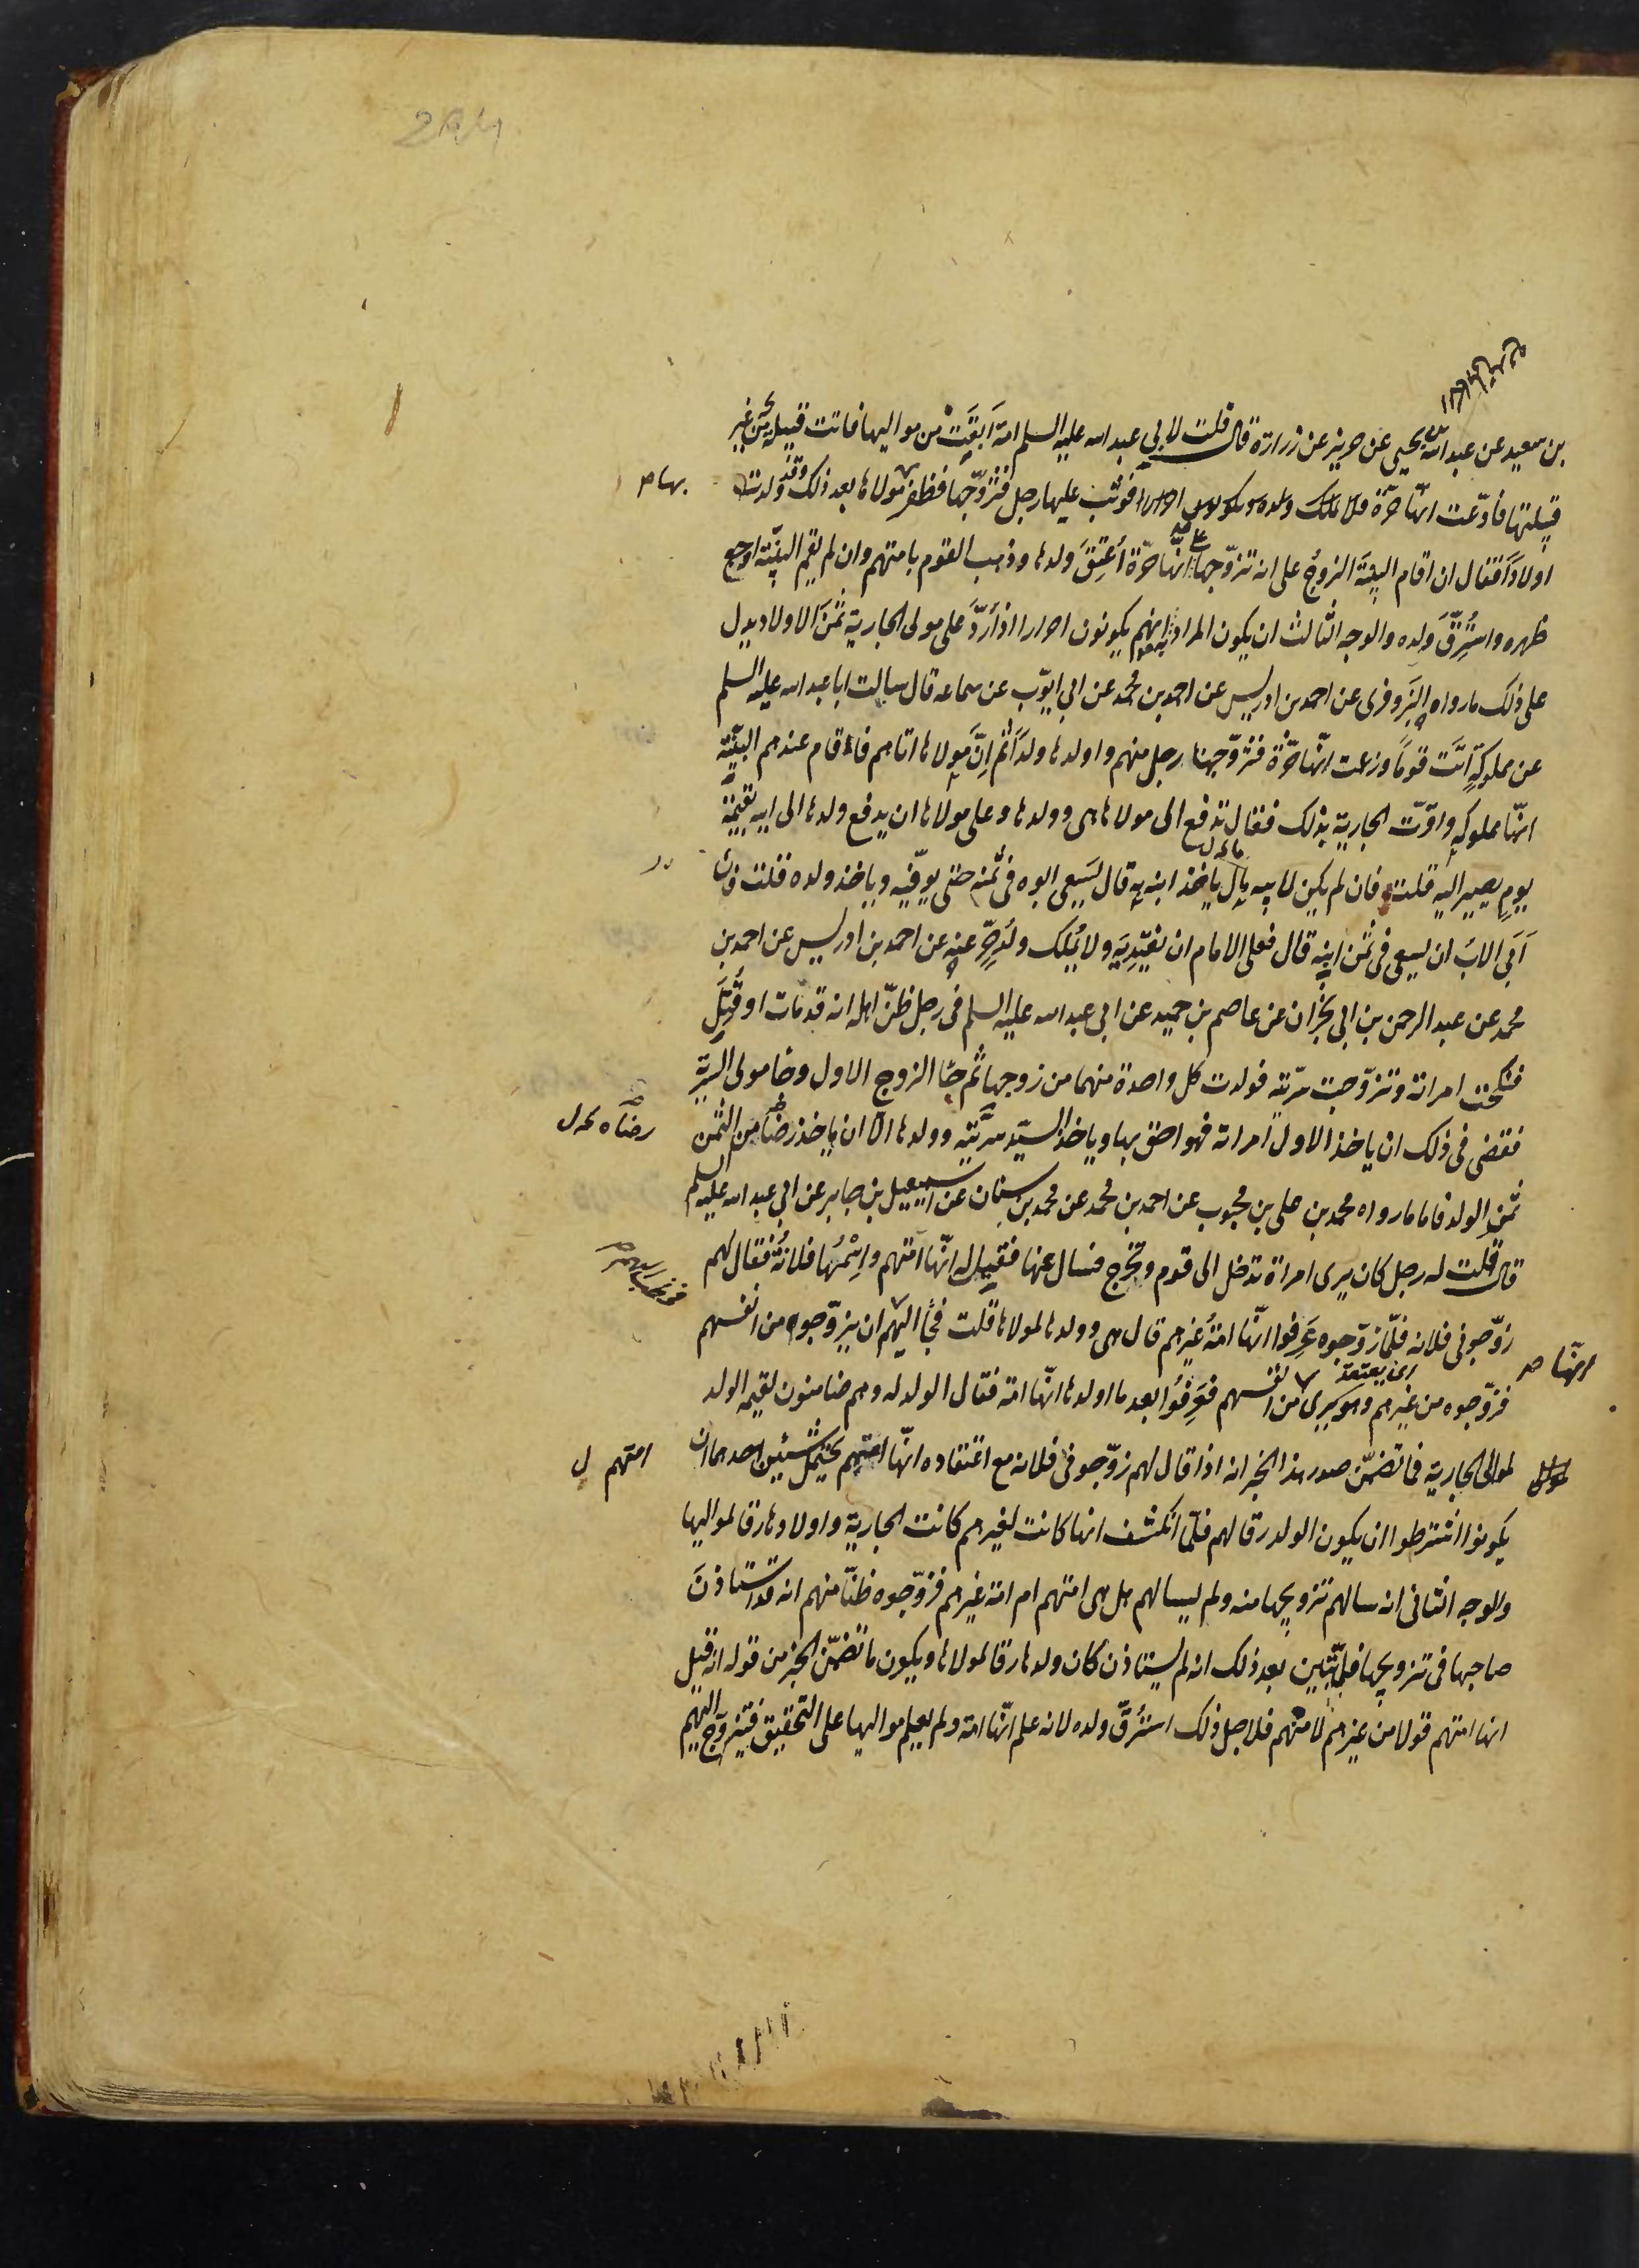 بن سعيد عن عبد الله بن يحيى عن حريز عن زرارة قال قلت لابي عبد الله عليه السلم امة اَبَقَت من مواليها فاتت قبيلة من غير
قبيلتها فادّعت انّها حرّة فوثب عليها رجل فتزوّجها فظفر مولاها بعد ذلك وقد ولدت
اولاداً فقال ان اقام البيّنة الزوجُ على انه تزوّجها على انّها حرّة اُعتِقَ ولدها وذهب القوم بامتهم وان لم يقم البيّنة اوجع
ظهره واستُرِقّ ولده والوجه الثالث ان يكون المراد انهم يكونون احرارا اذا رَدّ على مولى الجارية ثمَنَ الاولاد يدل
على ذلك ما رواه البَزَوفرى عن احمد بن ادريس عن احمد بن محمد عن ابى ايوّب عن سماعه قال سالت ابا عبد الله عليه السلم
عن مملوكةٍ اَتَت قوماً وزعمت انّها حرّة فتزوّجها رجل منهم واولدها ولداً ثم اِنّ مولاها اتاهم فاقام عندهم البيّنة
انّها مملوكه واقرّت الجارية بذلك فقال تدفع الى مولاها هى وولدها وعلى مولاها ان يدفع ولدها الى ابيه بقيمته
يوم يصير اليه قلت فان لم يكن لابيه ما ياخذ ابنه به قال يَسعى ابوه فى ثمنه حتى يوفّيه وياخذ ولده قلت فان
اَبَى الابَ ان يسعى فى ثمن ابنه قال فعلى الامام ان يفتدِيَه ولا يُملك ولد حرّ عنه عن احمد بن ادريس عن احمد بن
محمد عن عبد الرحمن بن ابى نجران عن عاصم بن حميد عن ابى عبد الله عليه السلم فى رجل ظنّ اهله انه قد مات او قُتِلَ
فنكحت امراته وتزوّجت سرّيته فولدت كل واحدة منهما من زوجها ثم جاء الزوج الاول وجا مولى السرية
فقضى فى ذلك ان ياخذ الاول امراته فهو احق بها وياخذ السيّد سرّيّته وولدها الا ان ياخذ رضاً من الثمن
رضاه
ثمنِ الولد فاما ما رواه محمد بن على بن محبوب عن احمد بن محمد عن محمد بن سنان عن اسمعيل بن جابر عن ابى عبد الله عليه السلم
قال قلت له رجل كان يرى امراة تدخل الى قوم وتخرج فسال عنها فقيل له انّها امتهم واِسْمُها فلانةُ فقال لهم
زوّجونى فلانه فلمّا زوّجوه عَرِفوا انّها امةُ غيرهم قال هى وولدها لمولاها قلت فجاء اليهم ان يزوّجوه من انفسهم
انّها
فزوّجوه من غيرهم وهو يرى انها من انفسهم فعَرِفُوا بعد ما اولدها انّها امة فقال الولد له وهم ضامنون لقيمه الولد
اى يعتقد
لموالى الجارية فما تضمّن صدر هذا الخبر انه اذا قال لهم زوّجونى فلانه مع اعتقاده انّها امتهم يحتمل شيئين احدهما ان
امتهم
يكونوا اشترطوا ان يكون الولد رقا لهم فلمّا انكشف انها كانت لغيرهم كانت الجارية واولادها رقا لمواليها
والوجه الثانى انه سالهم تزويجها منه ولم يسالهم هل هى امتهم ام امة غيرهم فزوّجوه ظنّا منهم انه قد استاذنَ
صاحبها فى تزويجها فلمّا تبيّن بعد ذلك انه لم يستاذن كان ولدها رقا لمولاها ويكون ما تضمّن الخبر من قوله انه قيل
انها امتهم قولا من غيرهم لا منهم فلاجل ذلك استُرِقّ ولده لانه علم انّها امة ولم يعلم مواليها على التحقيق فتزوّج اليهم